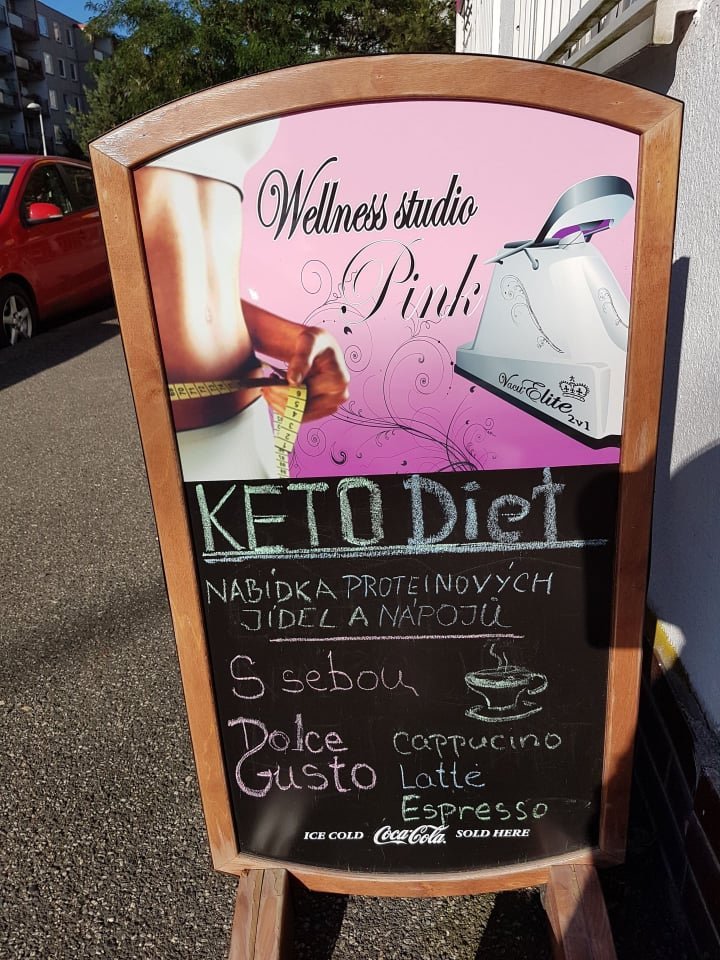 Wellness studio
Pink
Vacu-Elite
2v1
KETO Diet
NABÍDKA PROTEINOVÝCH
JÍDEL A NÁPOJŮ
S sebou
Dolce
Gusto
Cappucino
Latté
Espresso
ICE COLD Coca-Cola SOLD HERE